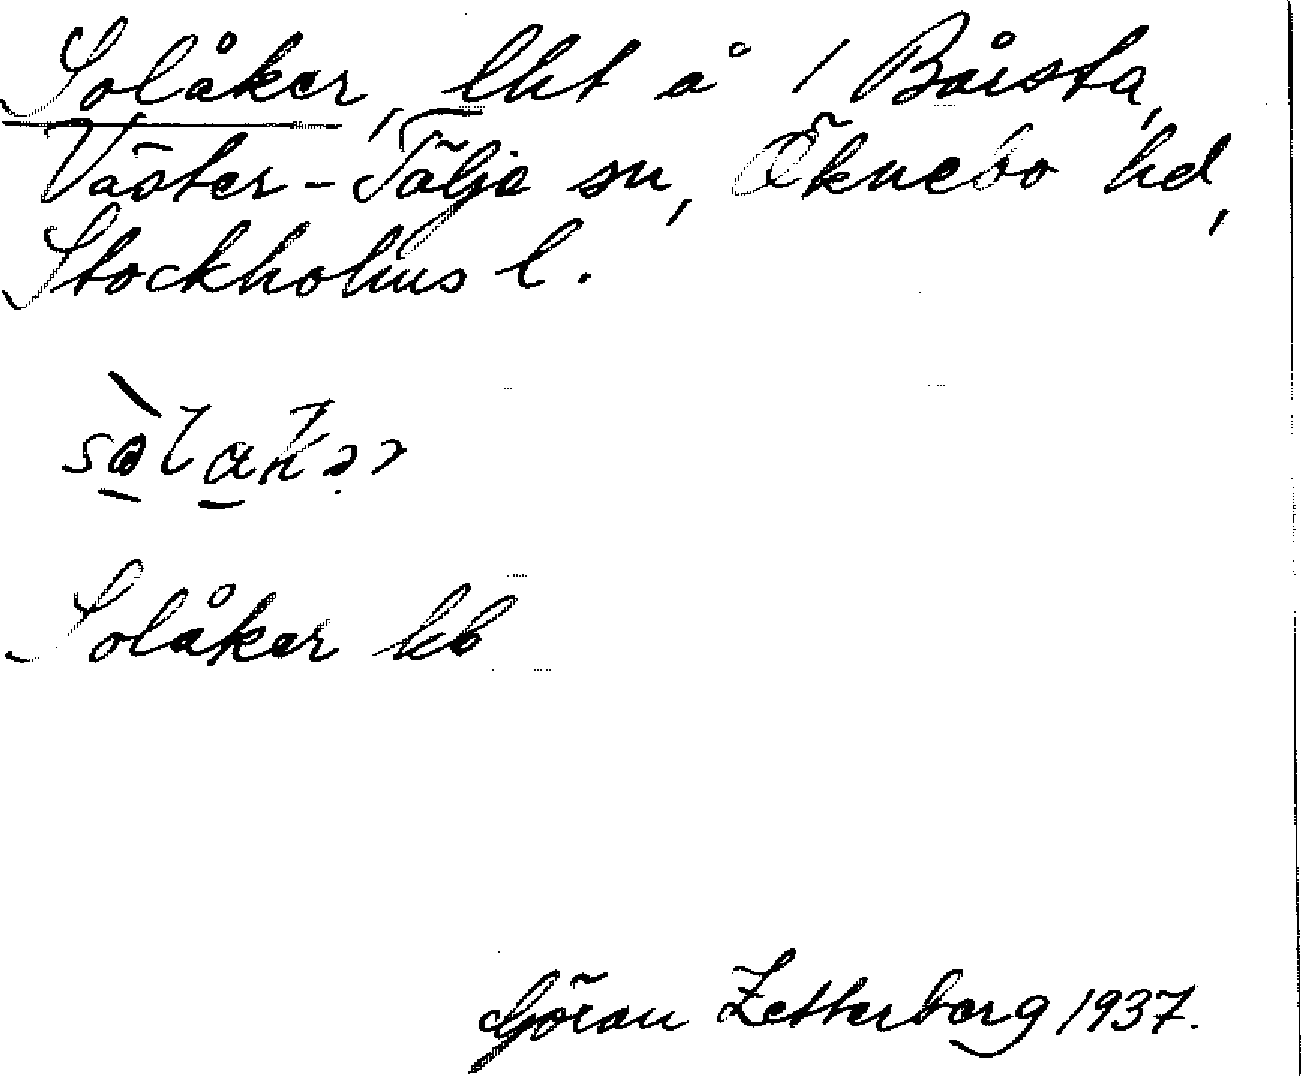 Solåker, lht å 1 Bårsta,
Väster-Tälje sn, Öknebo hd,
Stockholms l.
Solåker kb
Göran Zetterberg 1937.